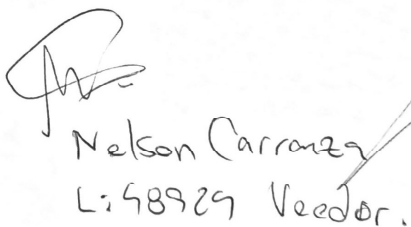 Nelson Carranza
L:48929 Veedor.